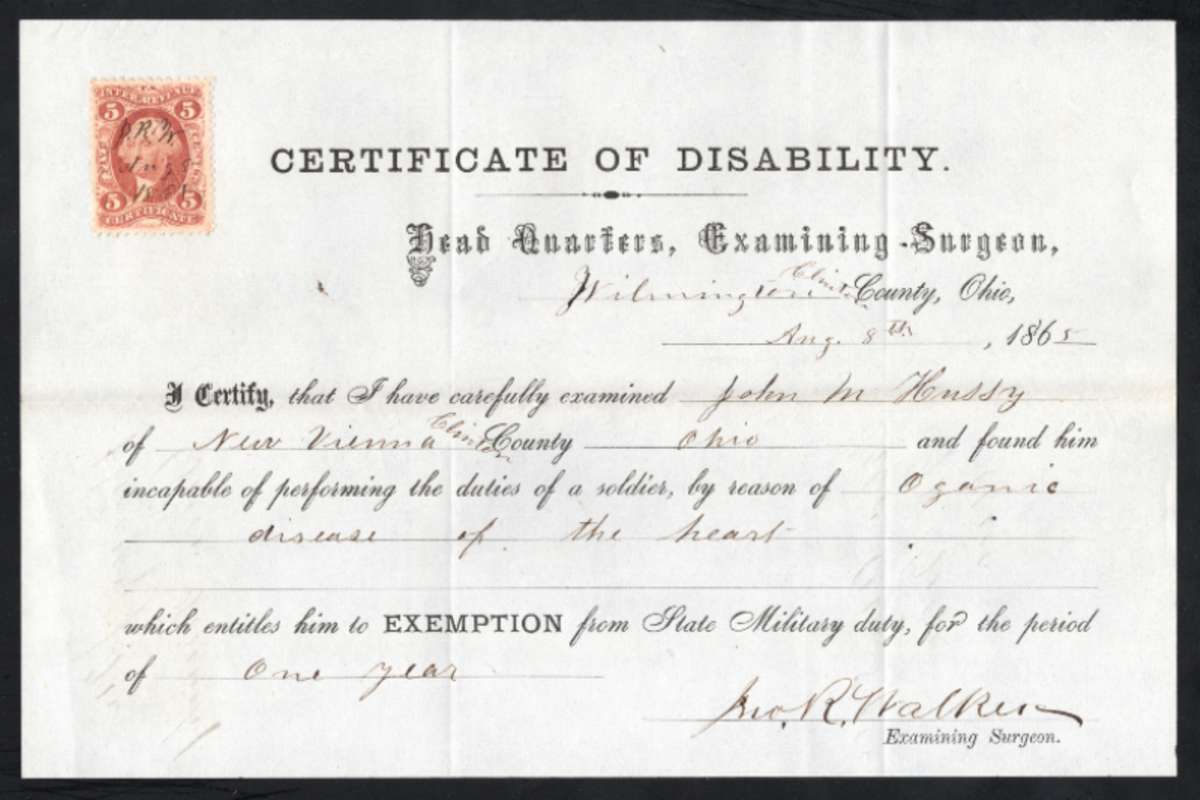 INTER. REVENUE
5 5
J.R.W.
Aug 8
1865
FIVE CENTS
5 5
CERTIFICATE
CERTIFICATE OF DISABILITY.
Head Quarters, Examining Surgeon,
Wilmington Clinton County, Ohio,
Aug. 8th, 1865
I Certify, that I have carefully examined John M Hussy
of New Vienna Clinton County Ohio and found him
incapable of performing the duties of a soldier, by reason of Oganic
disease of the heart
which entitles him to EXEMPTION from State Military duty, for the period
of One year
Jno. R. Walker
Examining Surgeon.